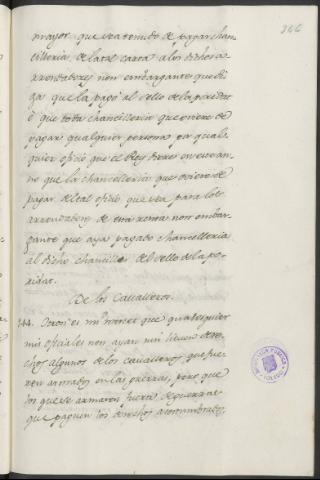 mayor que sea tenido de pagar chan
cilleria de la tal carta a los dichos a
rrendadores non embargante que di
ga que la pagó al sello de la poridad
ó que toda chancilleria que oviere de
pagar qualquier persona por qual
quier oficio que el Rey diere en su vi
no que la chancilleria que oviere de
pagar del tal oficio que sea para los
arrendadores de esta renta non embar
gante que aya pagado chancilleria
al dicho chanciller del sello de la po
ridat.
De los Cavalleros.
144. Otrosi es mi merced que qualesquier
mis oficiales non ayan nin lieven dere
chos algunos de los cavalleros que fue
ren armados en las guerras, pero que
los que se armaren fuera de guerra
que paguen los derechos acostumbrados,